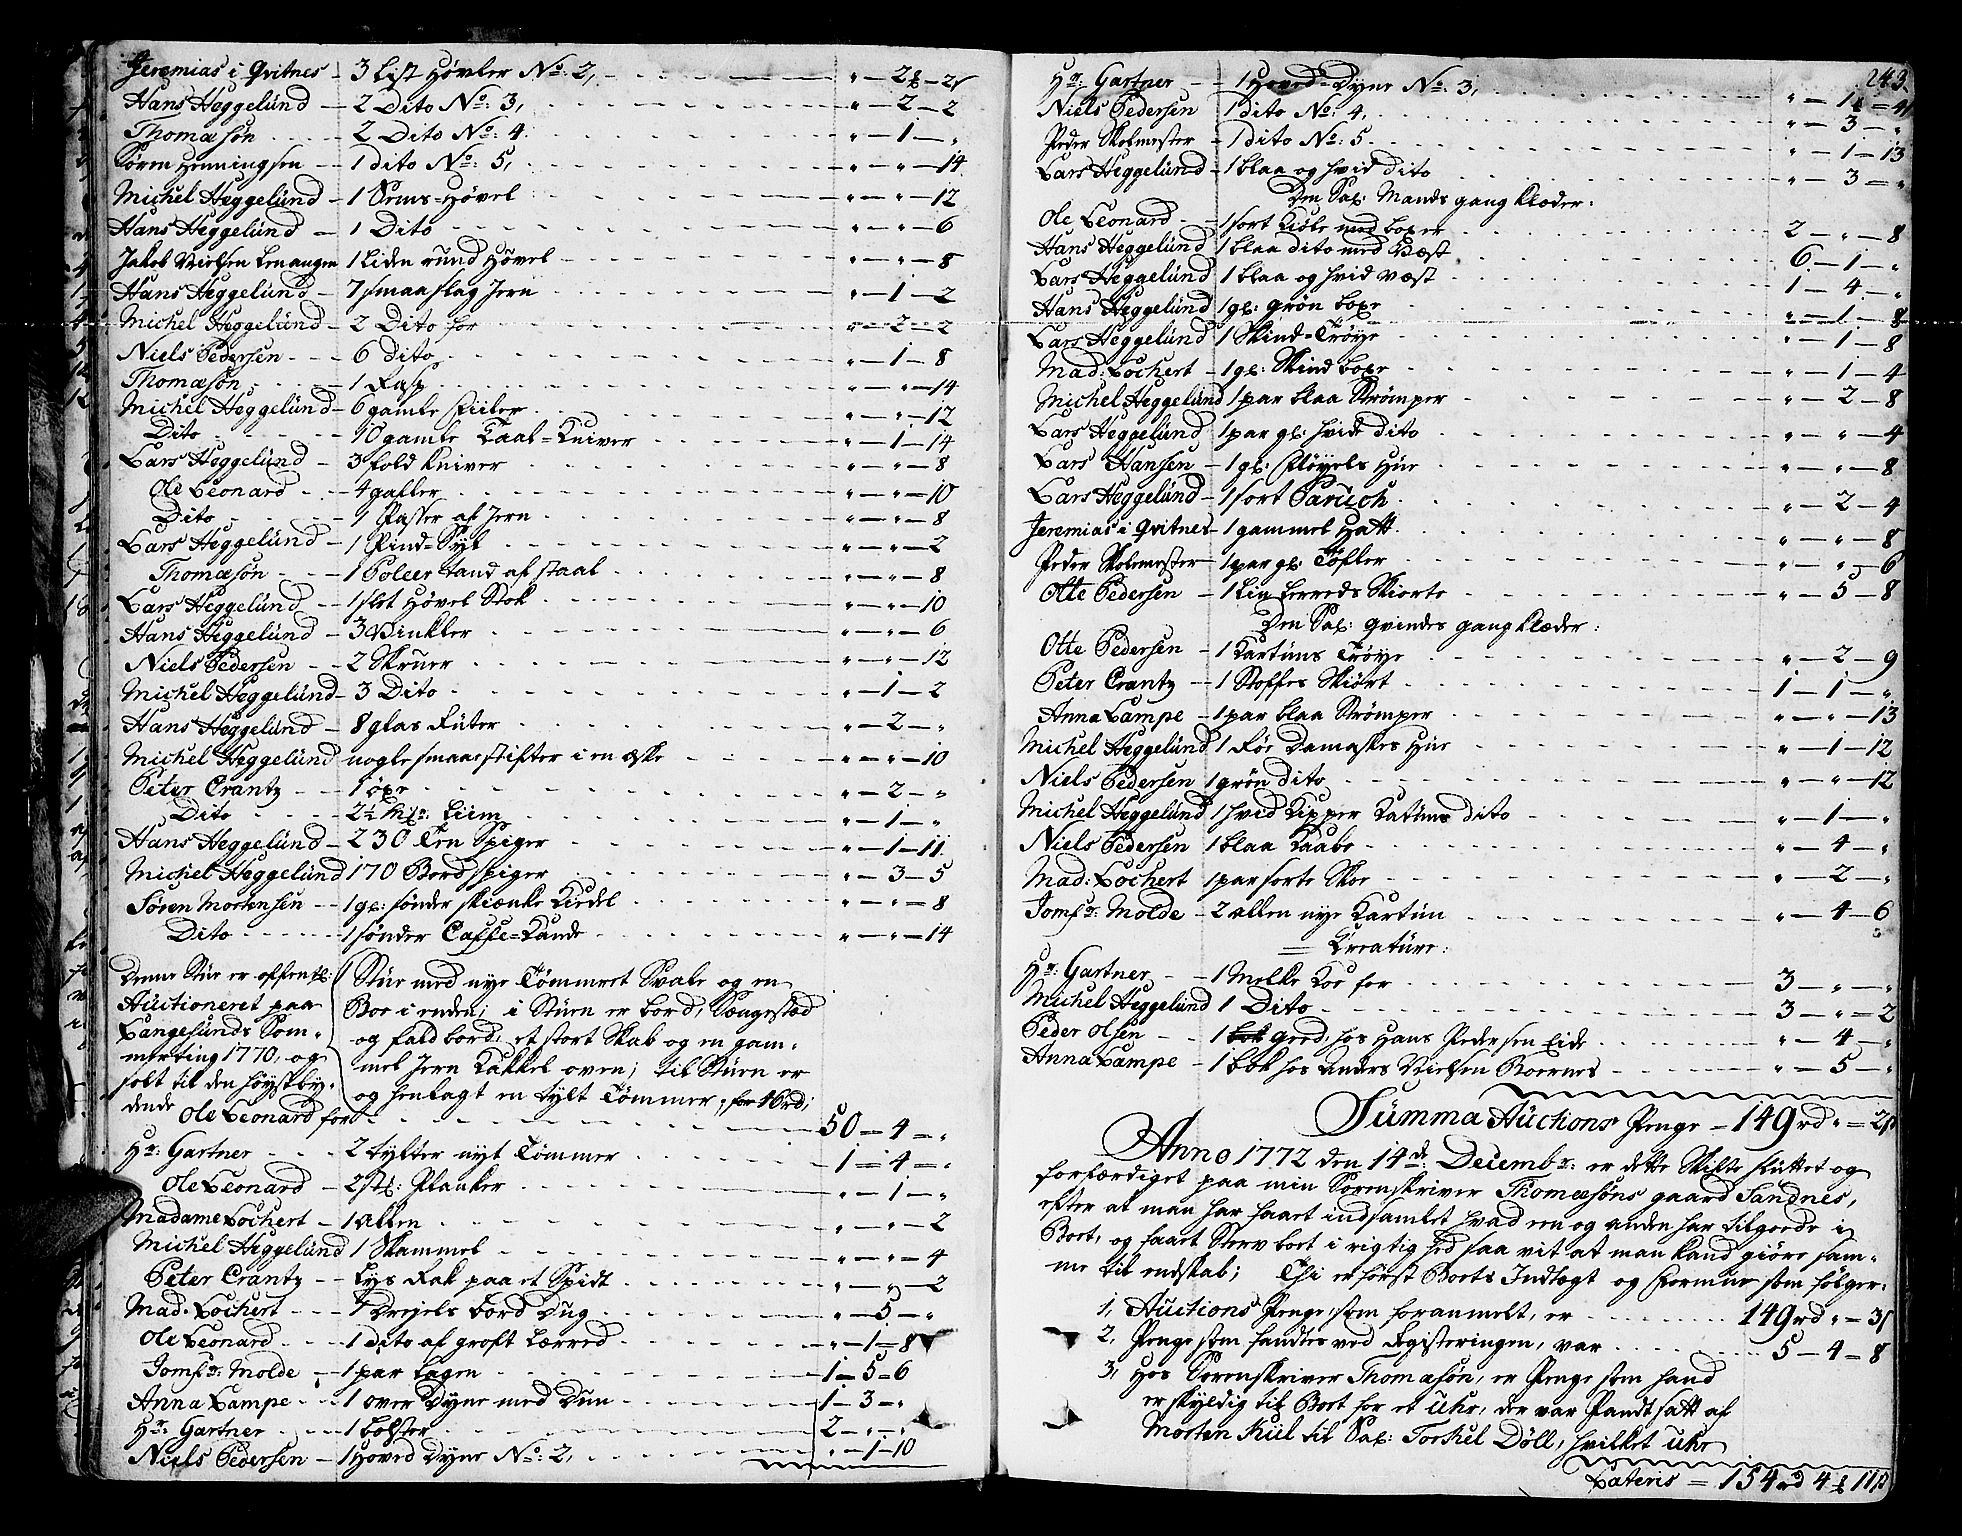 Jeremias i Qvitnes – 3 List Høvler No: 2, „ – 2 – 2
Hans Heggelund – 2 Dito No: 3, „ – 2 – 2
Thomæsøn 2 Dito No: 4. „ – 1 – „
Sören Henningsen – 1 dito No: 5, „ – „ – 14
Michel Heggelund – 1 Høvel „ – „ – 12
Hans Heggelund – 1 Dito „ – „ – 6
Jakob Nielsen Lenangen 1 Liden rund Høvel „ – „ – 8
Hans Heggelund – 7 smaa slag Jern „ – 1 – 2
Michel Heggelund – 2 Dito for „ – 2 – 2
Niels Pedersen 6 Dito „ – 1 – 8
Thomæsøn 1 Rasp „ – „ – 14
Michel Heggelund – 6 gamle fiiler „ – „ – 12
Dito 10 gamle Taal-Kniver „ – 1 – 14
Lars Heggelund – 3 fold kniver „ – „ – 8
Ole Leonard 4 galler „ – „ – 10
Dito 1 Passer af Jern „ – „ – 8
Lars Heggelund – 1 Pind-Syl „ – „ – 2
Thomæsøn 1 Poleer tand af staal „ – „ – 8
Lars Heggelund – 1 slet Høvel Stok „ – „ – 10
Hans Heggelund – 3 Vinkler „ – „ – 6
Niels Pedersen 2 Skruer „ – „ – 12
Michel Heggelund – 3 Dito „ – 1 – 2
Hans Heggelund – 8 glas Ruter „ – 2 – „
Michel Heggelund nogle smaae stifter i en æske „ – „ – 10
Peter Crantz 1 øxe „ – 2 – „
Dito 2½ Liim „ – 1 – „
Hans Heggelund – 230 Spiger „ – 1 – 11
Michel Heggelund 170 Bordspiger „ – 3 – 5
Søren Mortensen – 1 gl: sønder skiænke Kiedel „ – „ – 8
Dito 1 sønder Caffe-Kande „ – „ – 14
Denne Stue er offentl: 1 Stue med nye Tømmeret Svale og en
Auctioneret paa Boe i enden; i Stuen er bord, Sængestæd
Langesunds Som- og fald bord, et stort Skab og en gam-
merting 1770, og mel Jern Kakkel oven; til Stuen er
solt til den høystby- og henlagt en tylt Tømmer, for 16rd;
dende Ole Leonard for 50 – 4 – „
Hr: Gartner 2 tylter nyt Tømmer 1 – 4 – „
Ole Leonard – 2 stk: Planker „ – 1 – „
Madame Lochert – 1 allen „ – „ – 2
Michel Heggelund 1 Skammel „ – „ – 4
Peter Crantz – Lys Rak paa et Spidt „ – „ – 2
Mad: Lochert 1 Drejels bord Dug „ – 5 – „
Ole Leonard 1 dito af groft Lærred „ – 1 – 8
Jomfr: Molde – 1 par Lagen 1 – 5 – 6
Anna Lampe 1 over Dyne med Dun 1 – 3 – „
Hr: Gartner 1 bolster 2 – „ – „
Niels Pedersen – 1 Hoved Dyne No: 2, „ – 1 – 10
243.
Hr: Gartner 1 Hoved-Dyne No: 3, „ – 1 – 4
Niels Pedersen 1 dito No: 4, „ – 3 – „
Peder Skolmester – 1 dito No: 5. „ – 1 – 13
Lars Heggelund – 1 blaa og hvid dito „ – 3 – „
Den Sal: Mands gang Klæder:
Ole Leonard – 1 sort Kiole med boxer 2 – „ – 8
Hans Heggelund 1 blaa dito med Væst 6 – 1 – „
Lars Heggelund 1 blaa og hvid væst 1 – 4 – „
Hans Heggelund 1 gl: grøn boxe „ – 1 – 8
Lars Heggelund 1 Skind-Trøye „ – 1 – 8
Mad: Lochert – 1 gl: Skind boxe „ – 1 – 4
Michel Heggelund 1 par blaa Strømper „ – 2 – 8
Lars Heggelund 1 par gl: hvide dito „ – „ – 4
Lars Hansen – 1 gl: Fløyels Hue „ – „ – 8
Lars Heggelund – 1 sort Paruch „ – 2 – 4
Jeremias i Qvitnes – 1 gammel Hatt „ – „ – 8
Peder Skolemester – 1 par gl: Tøfler „ – „ – 6
Otte Pedersen – 1 Lin Lerreds Skiorte „ – 5 – 8
Den Sal: qvindes gang klæder:
Otte Pedersen – 1 Kartuns Trøye „ – 2 – 9
Peter Crantz – 1 Stoffes Skiørt 1 – 1 – „
Anna Lampe – 1 par blaa Strømper „ – „ – 13
Michel Heggelund 1 Rør Damaskes Hue „ – 1 – 12
Niels Pedersen 1 grøn dito „ – „ – 12
Michel Heggelund 1 hvid Kipper Kattuns dito „ – 1 – „
Niels Pedersen 1 blaa Kaabe „ – 4 – „
Mad: Lochert 1 par sorte Skoe „ – 2 – „
Jomfr: Molde – 2 allen nye Kartun „ – 4 – 6
Creature:
Hr: Gartner – 1 Melke Koe for 3 – „ – „
Michel Heggelund 1 Dito 3 – „ – 2
Peder Olsen – 1 bok geed, hos Hans Pedersen Eide „ – 4 – „
Anna Lampe – 1 bok hos Anders Nielsen „ – 5 – „
Summa Auctions Penge – 149 rd „ – 2
Anno 1772 den 14de: Decembr: er dette Skifte sluttet og
forfærdiget paa min Sorenskriver Thomæsøns gaard Sandnes,
efter at man har faaet indsamlet hvad een og anden har tilgoede i
Boet, og faaet Sterv boet i rigtighed saa vit at man kand giøre sam-
me til endskab; Thi er først Boets Indtægt og Formue som følger:
1, Auctions Penge, som foranmelt, er 149 rd „ – 3
2, Penge som fandtes ved Registeringen, var 5 – 4 – 8
3, Hos Sorenskriver Thomæsøn, er Penge som hand
er skyldig til Boet for et Uhr, der var Pandtsatt af
Morten Kiil til Sal: Torkel Döll, hvilket Uhr
Lateris = 154 rd 4 11